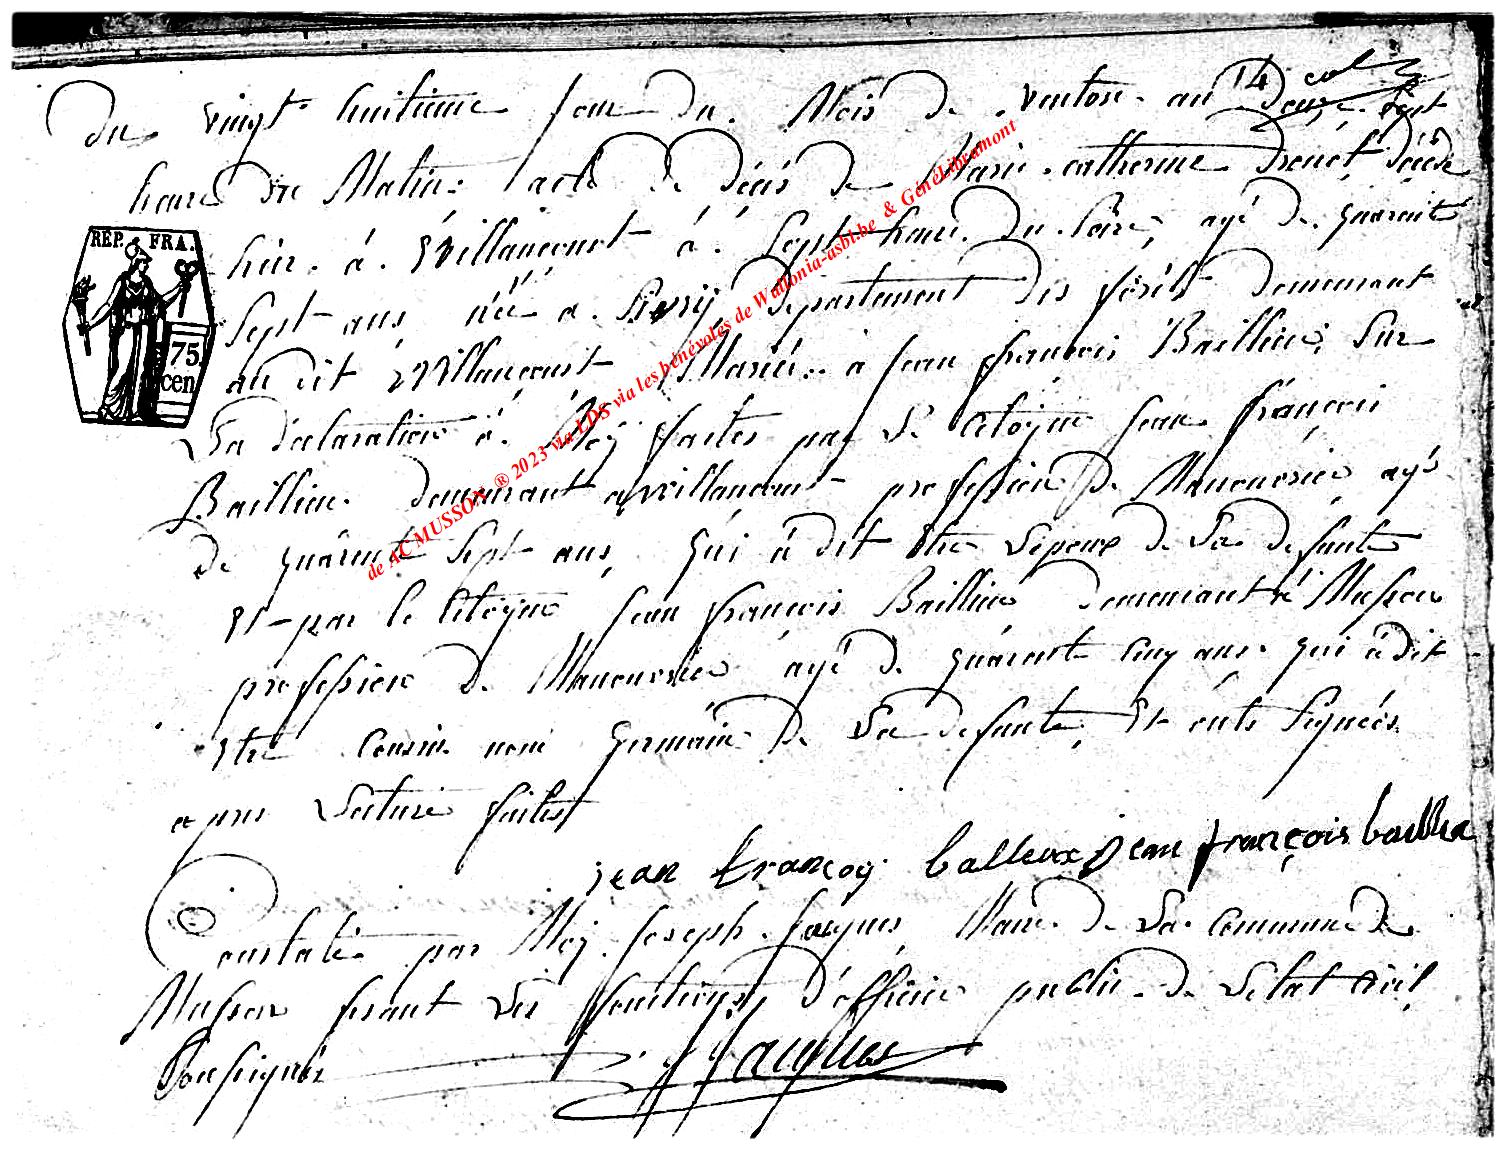 Du vingt huitieme jour du Mois de Ventose an 14 Douze Sept
heure du Matin. acte de décés de Marie. catherine Drénet, décédé
hier. á. Willancourt á. Sept heure. du. soire, agé de quarente
REP. FRA.
Sept ans néé a. Département des foréts demeurant
75 cen
au dit Willancourt Marié.. a jean françois Baillieu, Sur
La déclaration á. Moÿ faites par Le Citoÿne jean françois
Baillieu. demeurant a Willancourt profession de Manouvrier agé
de quárente Sept ans, qui á dit Etre L'epoux de La defunte
Et par le Citoÿne jean françois Baillieu demeurant á Musson
profession de Manouvrier agé de quárente Cinq ans. qui á dit
Etre Cousin noni Germain de La defunte, Et onts Signéés.
apres Lecture faites
jean francoy balleux jean françois baillia
Constaté. par Moÿ. joseph. jacques Maire. de La. Commune de
Musson fesant Les fonctions d'officier public. de L'etat Civil
Sousignés Jacques
de AC MUSSON ® 2023 via LDS via les bénévoles de Wallonia-asbl.be & GénéLibramont